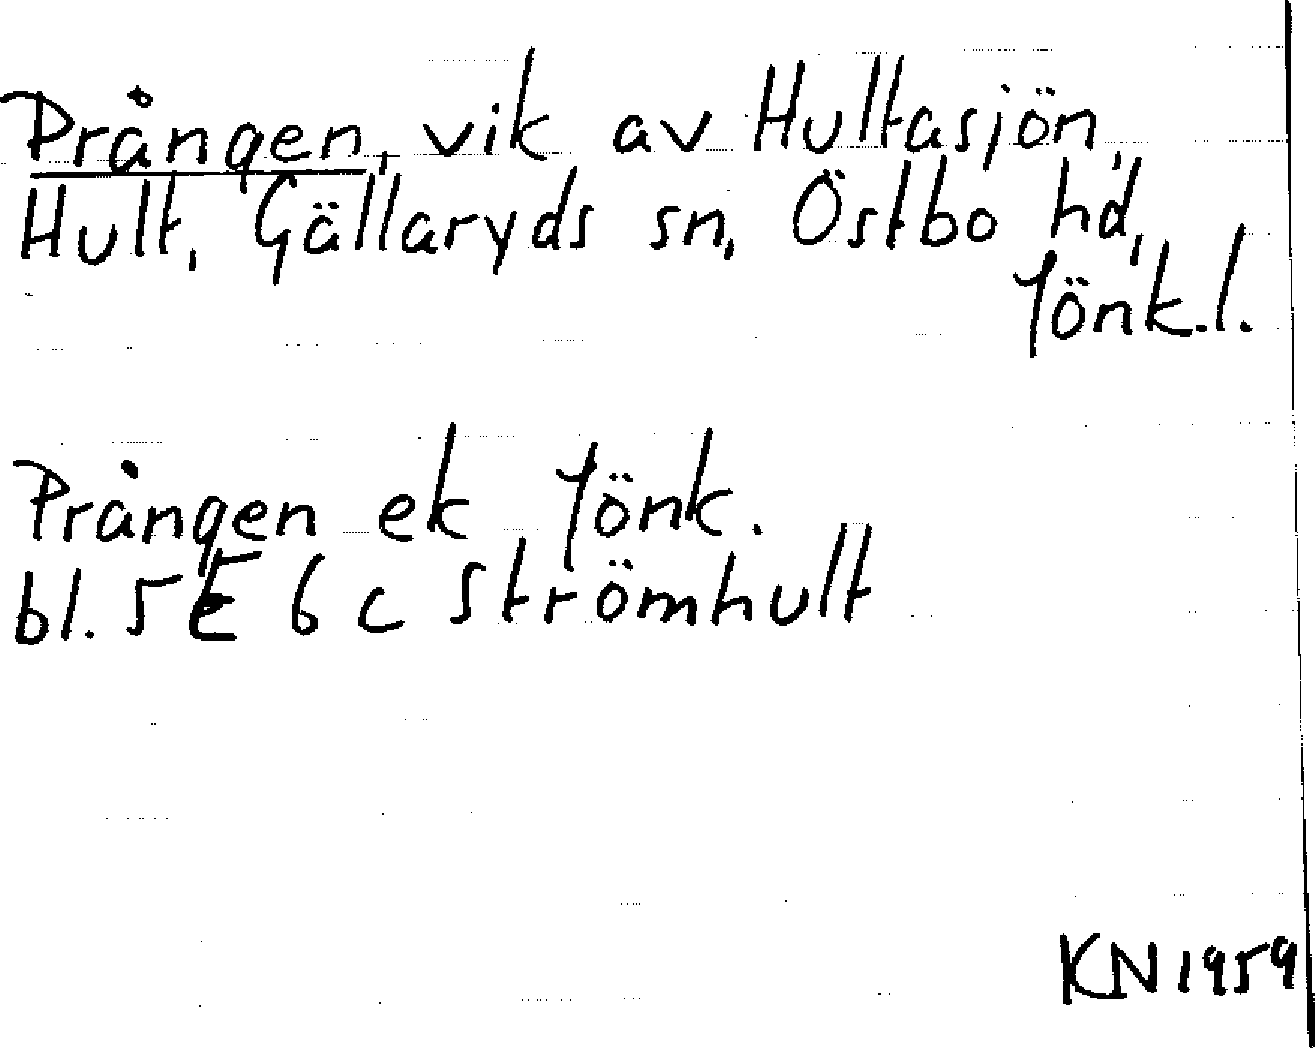 Prången, vik av Hultasjön,
Hult, Gällaryds sn, Östbo hd,
Jönk.l.
Prången ek Jönk.
bl. 5E 6c Strömhult
KN 1959